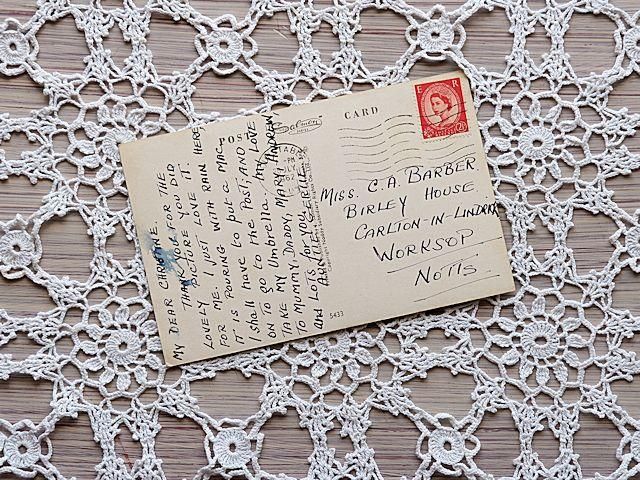 POST CARD
Salmon
E R
2½
MY DEAR CHRISTINE.
THANK YOU FOR THE
LOVELY PICTURE YOU DID
FOR ME. I JUST LOVE IT.
IT IS POURING WITH RAIN HERE
I shall HAVE to put a MAC
ON TO GO to the Post, AND
TAKE MY Umbrella. MY LOVE
TO MUMMY, DADDY, MARY, ANDREW
and LOTS for you,
AUNTIE
5433
MISS. C. A. BARBER.
BIRLEY HOUSE.
CARLTON-IN-LINDRICK
WORKSOP
NOTTS.